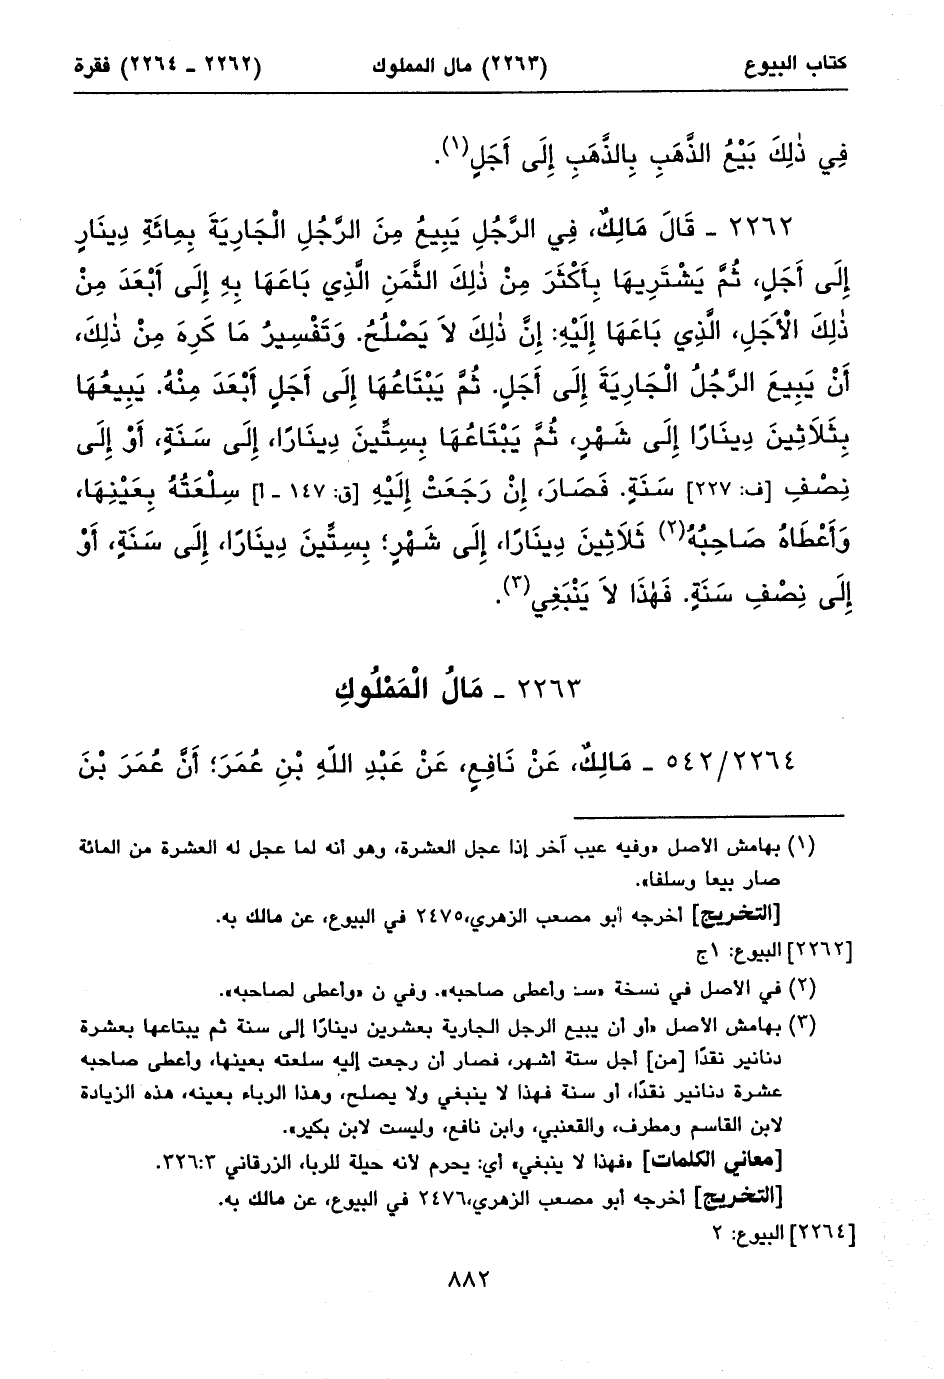 كتاب البيوع (٢٢٦٣) مال المملوك (٢٢٦٢ - ٢٢٦٤) فقرة
فِي ذٰلِكَ بَيْعُ الذَّهَبِ بِالذَّهَبِ إِلَى أَجَلٍ(١).
٢٢٦٢ - قَالَ مَالِكٌ، فِي الرَّجُلِ يَبِيعُ مِنَ الرَّجُلِ الْجَارِيَةَ بِمِائَةِ دِينَارٍ
إِلَى أَجَلٍ، ثُمَّ يَشْتَرِيهَا بِأَكْثَرَ مِنْ ذٰلِكَ الثَّمَنِ الَّذِي بَاعَهَا بِهِ إِلَى أَبْعَدَ مِنْ
ذٰلِكَ الْأَجَلِ، الَّذِي بَاعَهَا إِلَيْهِ: إِنَّ ذٰلِكَ لاَ يَصْلُحُ. وَتَفْسِيرُ مَا كَرِهَ مِنْ ذٰلِكَ،
أَنْ يَبِيعَ الرَّجُلُ الْجَارِيَةَ إِلَى أَجَلٍ. ثُمَّ يَبْتَاعُهَا إِلَى أَجَلٍ أَبْعَدَ مِنْهُ. يَبِيعُهَا
بِثَلَاثِينَ دِينَارًا إِلَى شَهْرٍ، ثُمَّ يَبْتَاعُهَا بِسِتِّينَ دِينَارًا، إِلَى سَنَةٍ، أَوْ إِلَى
نِصْفِ [ف: ٢٢٧] سَنَةٍ. فَصَارَ، إِنْ رَجَعَتْ إِلَيْهِ [ق: ١٤٧ - ا] سِلْعَتُهُ بِعَيْنِهَا،
وَأَعْطَاهُ صَاحِبُهُ(٢) ثَلَاثِينَ دِينَارًا، إِلَى شَهْرٍ؛ بِسِتِّينَ دِينَارًا، إِلَى سَنَةٍ، أَوْ
إِلَى نِصْفِ سَنَةٍ. فَهٰذَا لاَ يَنْبَغِي(٣).
٢٢٦٣ - مَالُ الْمَمْلُوكِ
٥٤٢/٢٢٦٤ - مَالِكٌ، عَنْ نَافِعٍ، عَنْ عَبْدِ اللّهِ بْنِ عُمَرَ؛ أَنَّ عُمَرَ بْنَ
(١) بهامش الأصل «وفيه عيب آخر إذا عجل العشرة، وهو أنه لما عجل له العشرة من المائة
صار بيعا وسلفا».
[التخريج] أخرجه أبو مصعب الزهري،٢٤٧٥ في البيوع، عن مالك به.
[٢٢٦٢] البيوع: ١ج
(٢) في الأصل في نسخة «سـ: وأعطى صاحبه». وفي ن «وأعطى لصاحبه».
(٣) بهامش الأصل «أو أن يبيع الرجل الجارية بعشرين دينارًا إلى سنة ثم يبتاعها بعشرة
دنانير نقدًا [من] أجل ستة أشهر، فصار أن رجعت إليه سلعته بعينها، وأعطى صاحبه
عشرة دنانير نقدًا، أو سنة فهذا لا ينبغي ولا يصلح، وهذا الرباء بعينه، هذه الزيادة
لابن القاسم ومطرف، والقعنبي، وابن نافع، وليست لابن بكير».
[معاني الكلمات] «فهذا لا ينبغي» أي: يحرم لأنه حيلة للربا، الزرقاني ٣٢٦:٣.
[التخريج] أخرجه أبو مصعب الزهري،٢٤٧٦ في البيوع، عن مالك به.
[٢٢٦٤] البيوع: ٢
٨٨٢